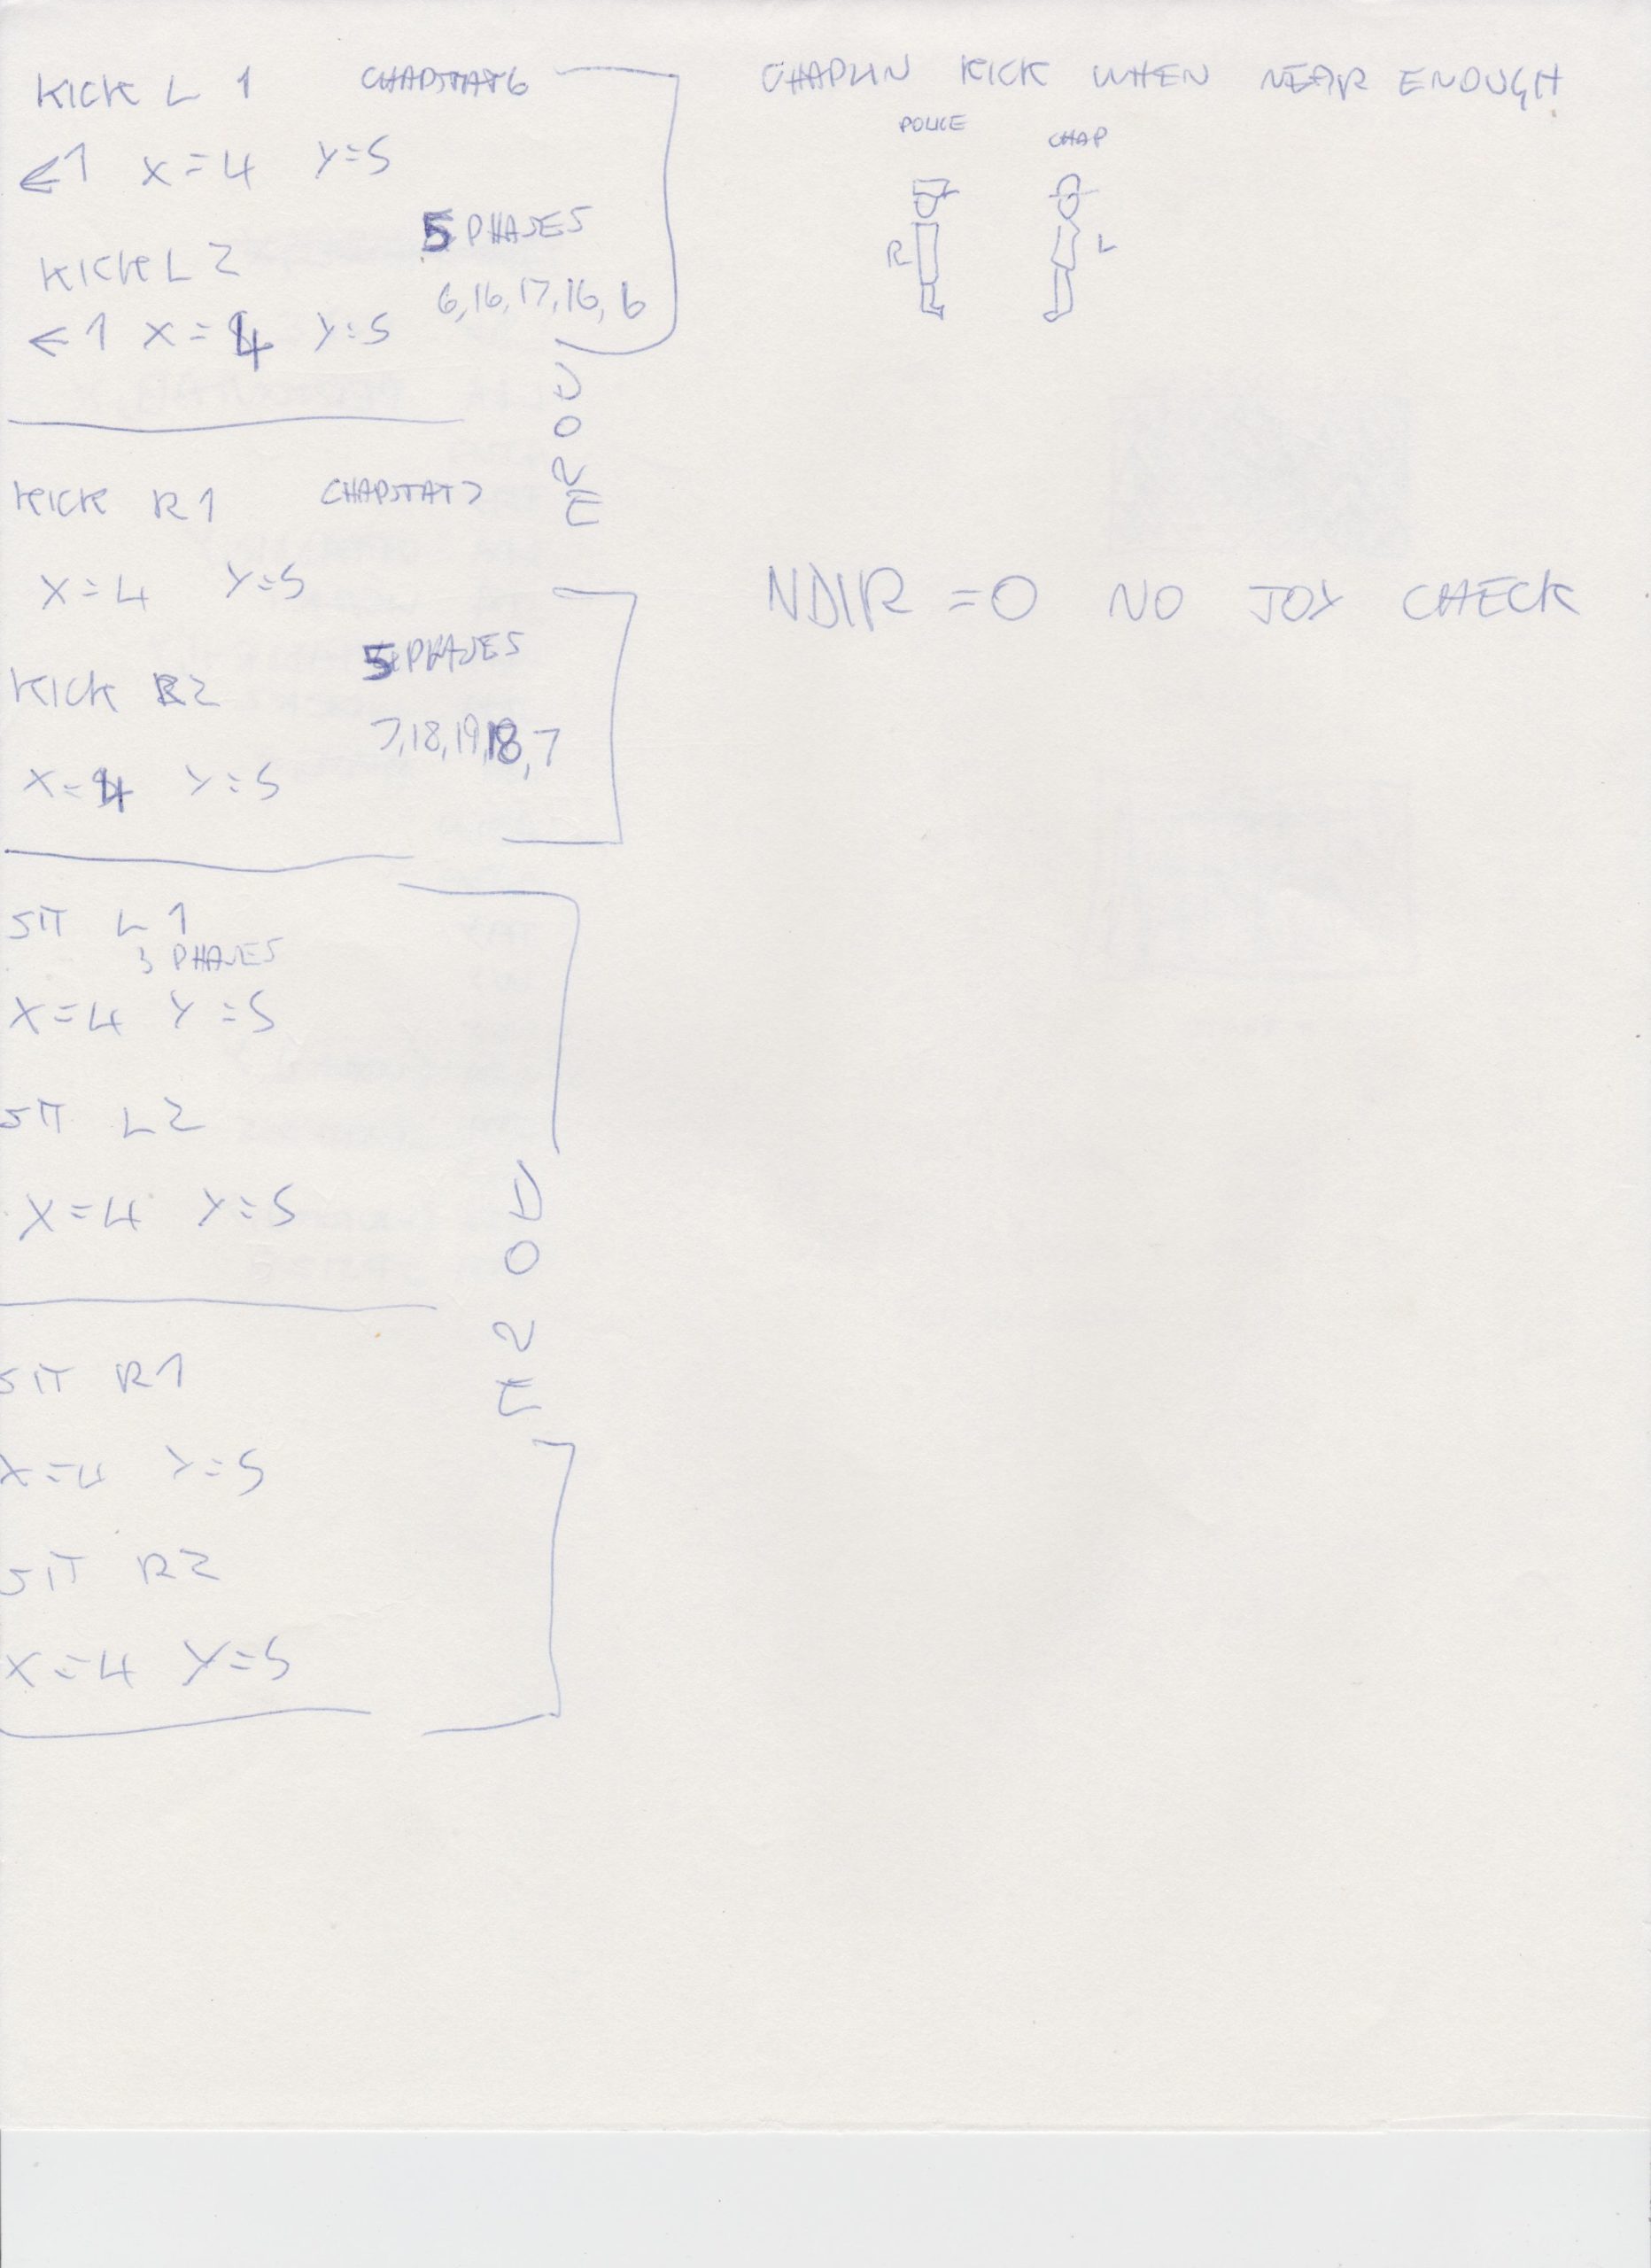 KICK L 1 CHAPSTAT 6
←1 X=4 Y=5
5 PHASES
KICK L 2
6,16,17,16,6
←1 X=4 Y=5
D
O
2
E
KICK R1 CHAPSTAT 7
X=4 Y=5
5 PHASES
KICK R2
7,18,19,18,7
X=4 Y=5
SIT L 1
3 PHASES
X=4 Y=5
SIT L2
X=4 Y=5
D
O
2
E
SIT R1
X=4 Y=5
SIT R2
X=4 Y=5
CHAPLIN KICK WHEN NEAR ENOUGH
POLICE CHAP
R L
NDIR =0 NO JOY CHECK